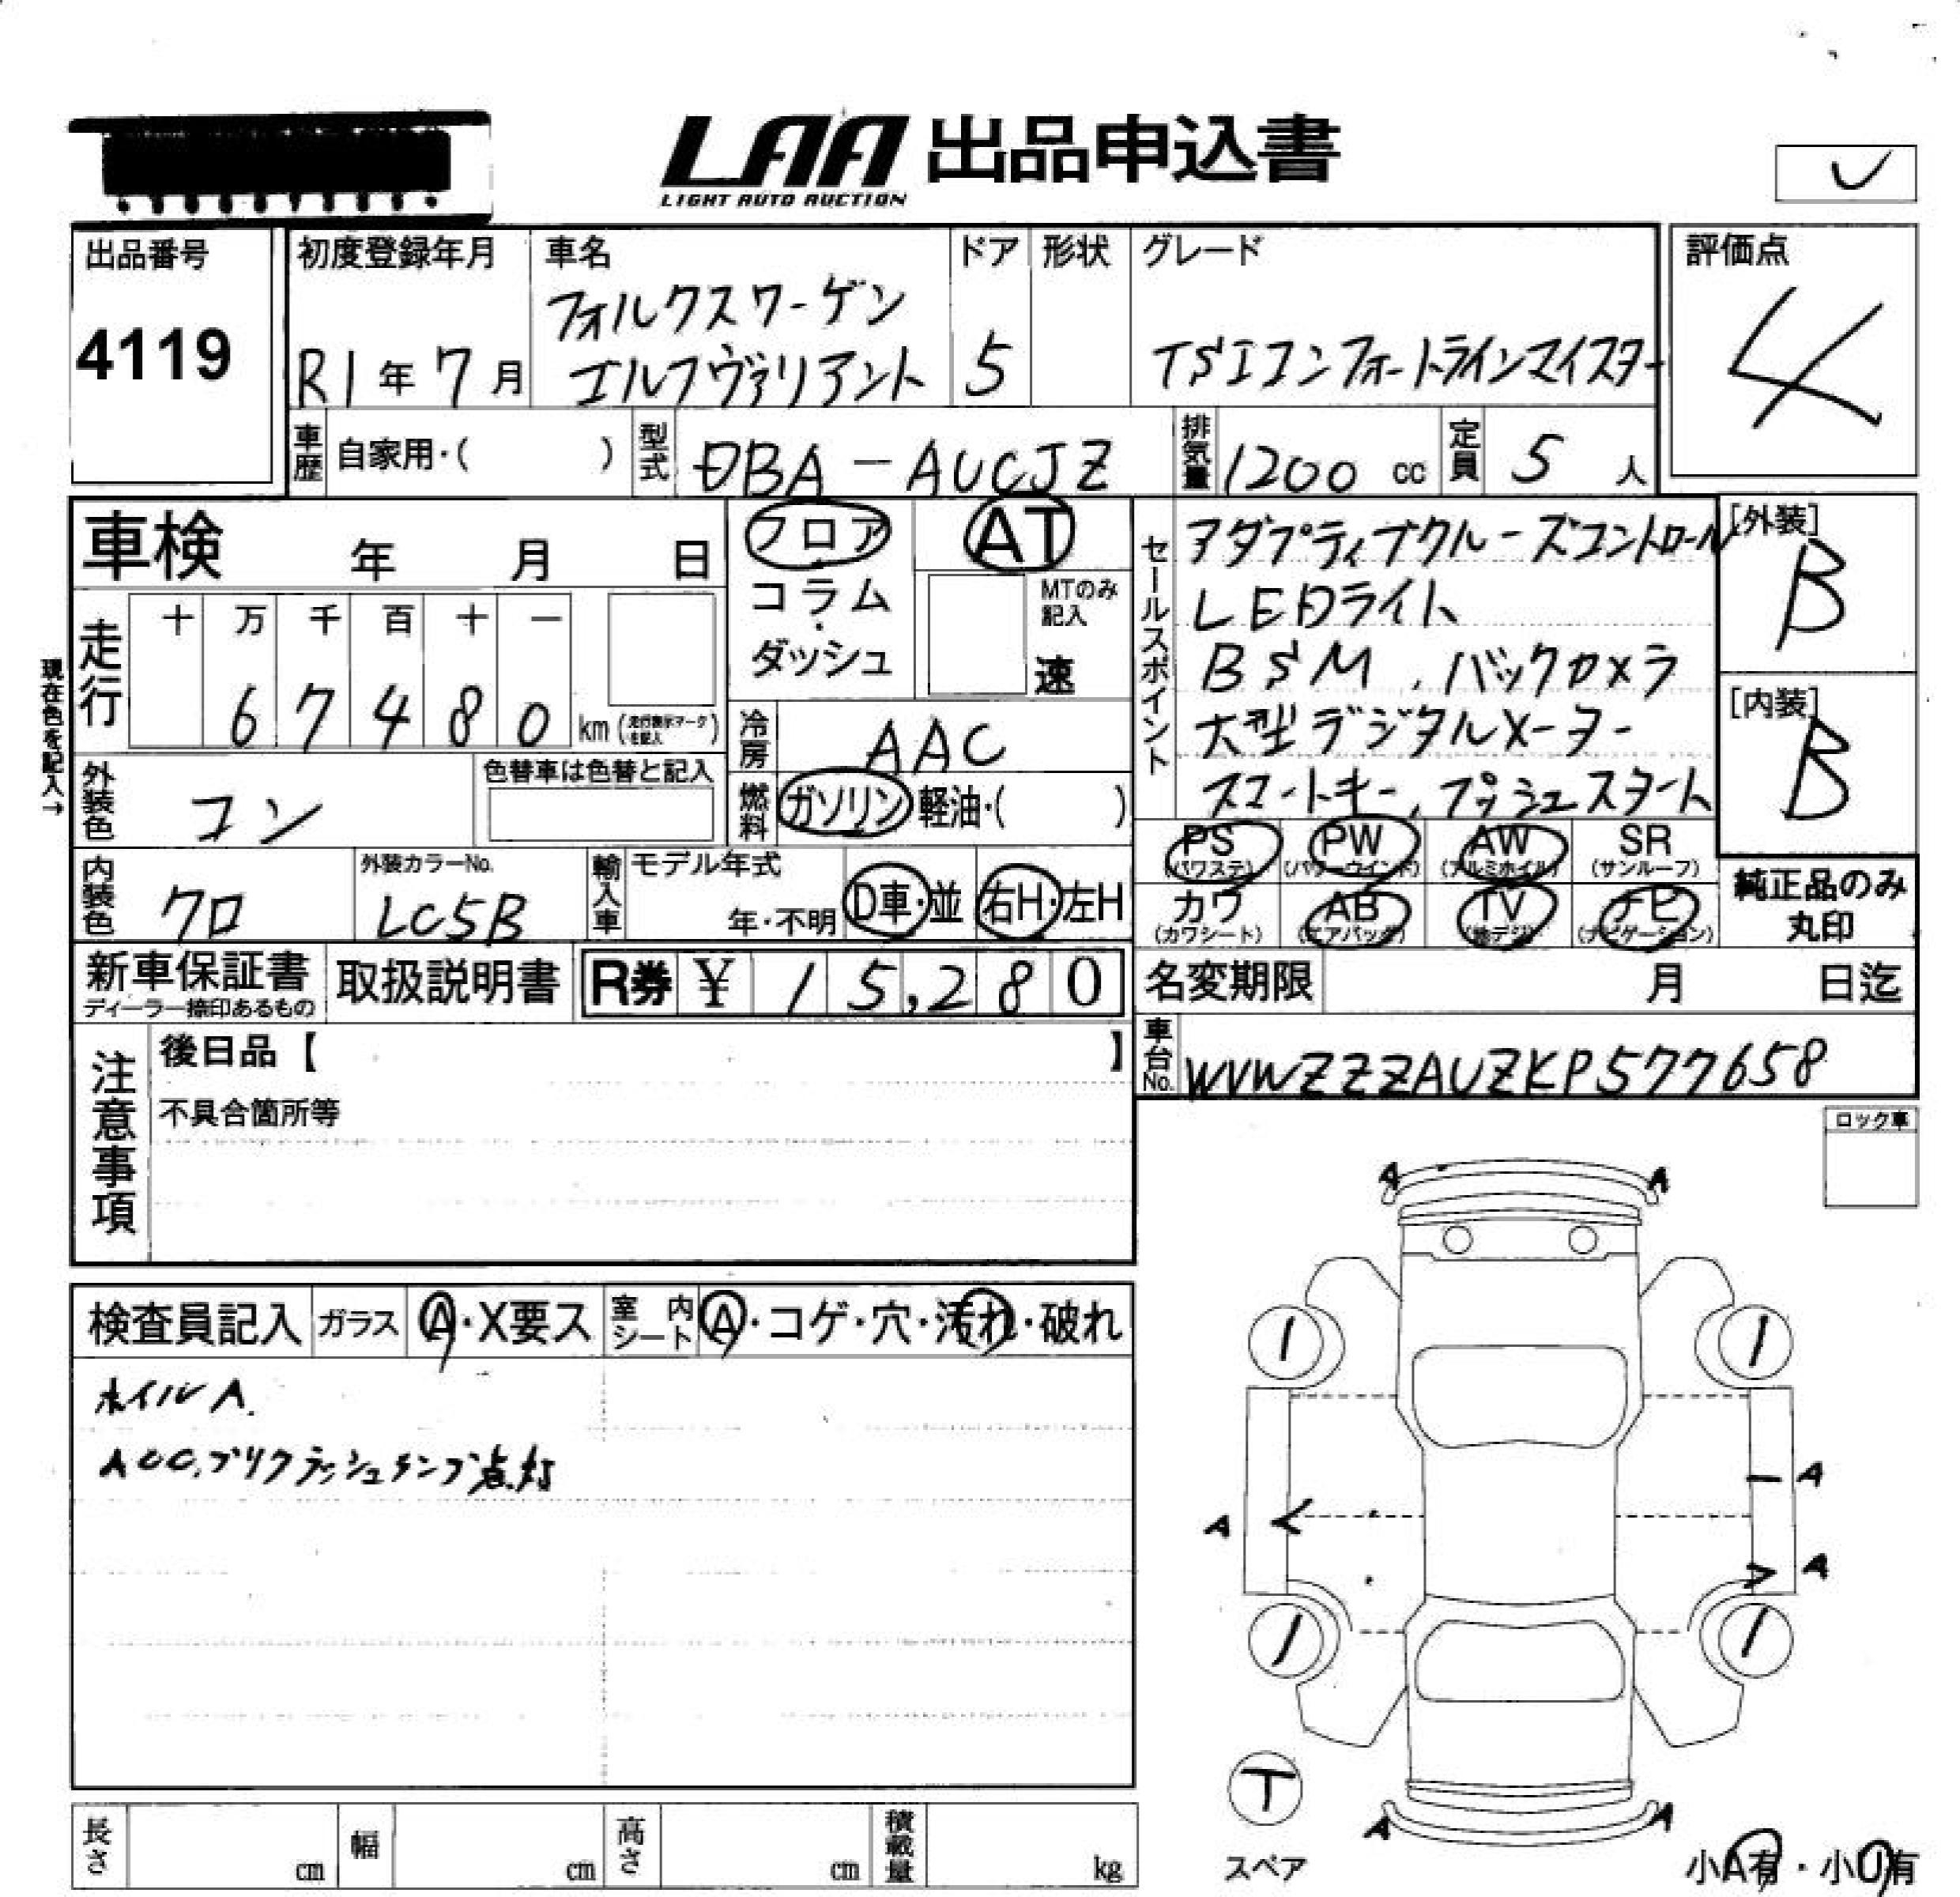 LAA 出品申込書
LIGHT AUTO AUCTION
出品番号
4119
初度登録年月
R1年7月
車名
フォルクスワーゲン
ゴルフヴァリアント
ドア
5
形状
グレード
TSIコンフォートラインマイスター
評価点
4
車歴
自家用・( )
型式
DBA-AUCJZ
排気量
1200 cc
定員
5 人
車検 年 月 日
フロア
コラム
・
ダッシュ
AT
MTのみ
記入
速
現在色を記入→
走行
十 万 千 百 十 一
6 7 4 8 0 km
冷房
AAC
外装色
コン
色替車は色替と記入
燃料
ガソリン 軽油・( )
内装色
クロ
外装カラーNo.
LC5B
輸入車
モデル年式
年・不明
D車・並
右H・左H
セールスポイント
アダプティブクルーズコントロール
LEDライト
BSM, バックカメラ
大型デジタルメーター
スマートキー, プッシュスタート
[外装]
B
[内装]
B
PS
(パワステ)
PW
(パワーウインド)
AW
(アルミホイル)
SR
(サンルーフ)
カワ
(カワシート)
AB
(エアバッグ)
TV
(地デジ)
ナビ
(ナビゲーション)
純正品のみ
丸印
新車保証書
ディーラー捺印あるもの
取扱説明書
R券 ¥ 15,280
名変期限 月 日迄
車台No.
WVWZZZAUZKP577658
注意事項
後日品【 】
不具合箇所等
ロック車
検査員記入
ガラス
A・X要ス
室内シート
A・コゲ・穴・汚れ・破れ
ホイルA.
ACC,プリクラッシュランプ点灯
A A
1 1
A
A
A
1 1
T
スペア
A A
小A有・小U有
長さ cm
幅 cm
高さ cm
積載量 kg